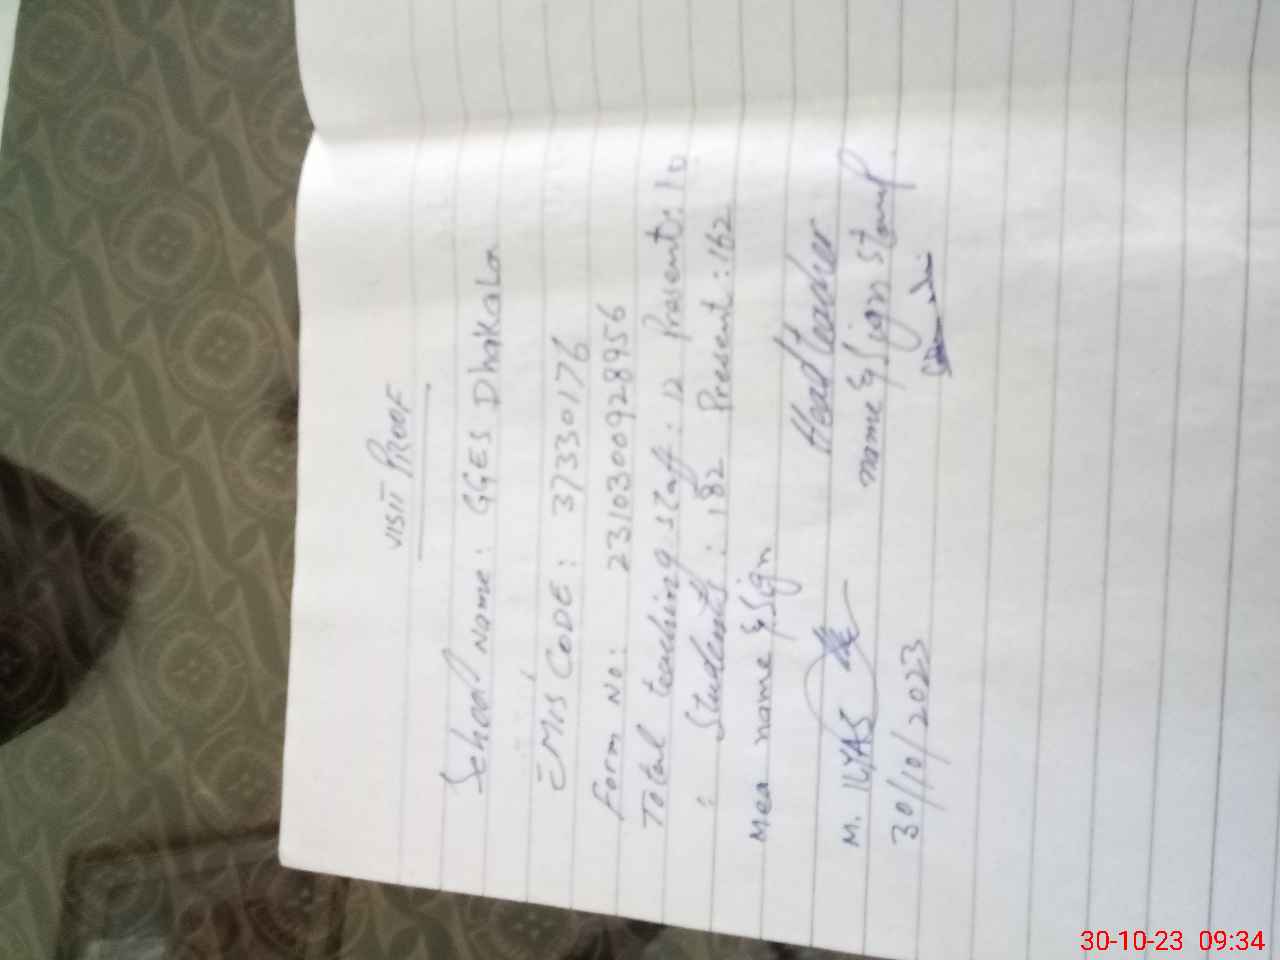 VISIT PROOF
School Name: GGES Dhakala
EMIS CODE: 37330176
Form No: 2310300928956
Total teaching staff: 12 Present: 10
: Students: 182 Present: 162
Mea name & Sign
Head teacher
name & Sign stamp
M. ILYAS
30/10/2023
30-10-23 09:34